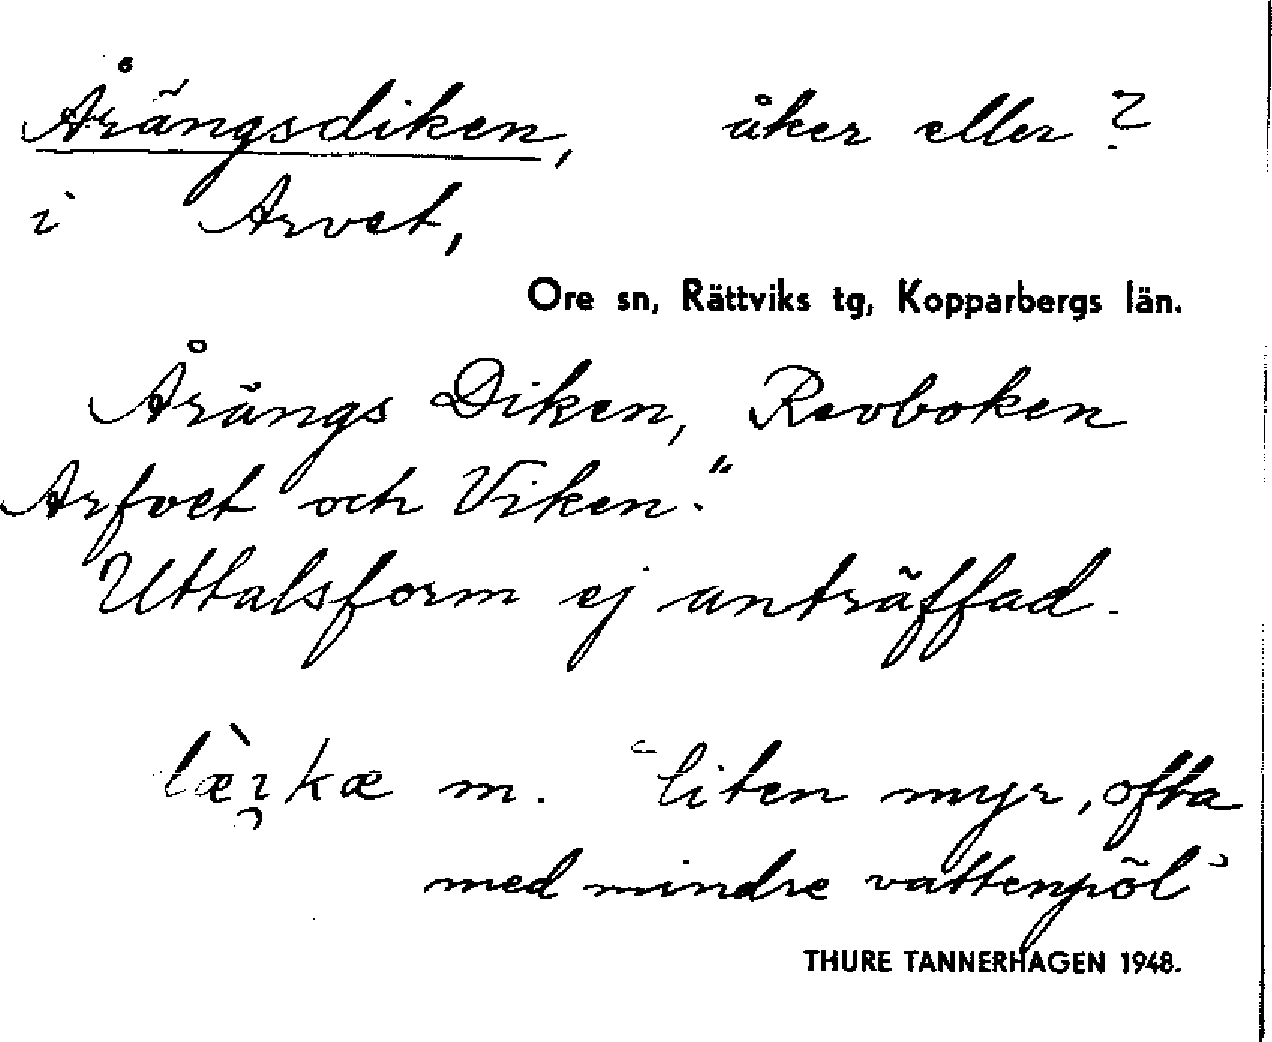 Årängsdiken, åker eller ?
i Arvet,
Ore sn, Rättviks tg, Kopparbergs län.
Årängs Diken, Revboken
Arfvet och Viken."
Uttalsform ej anträffad.
m. "liten myr, ofta
med mindre vattenpöl"
THURE TANNERHAGEN 1948.